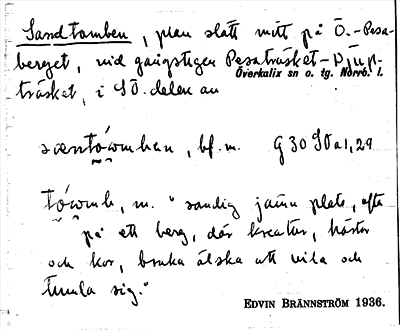 Sandtomben, plan slätt mitt på Ö.-Pesa-
berget, vid gångstigen Pesaträsket-Djup-
Överkalix sn o. tg. Norrb. l.
träsket, i SÖ.delen av
bf.m.
m. "sandig jämn plats, ofta
på ett berg, där kreatur, hästar
och kor, bruka älska att vila och
tumla sig."
EDVIN BRÄNNSTRÖM 1936.